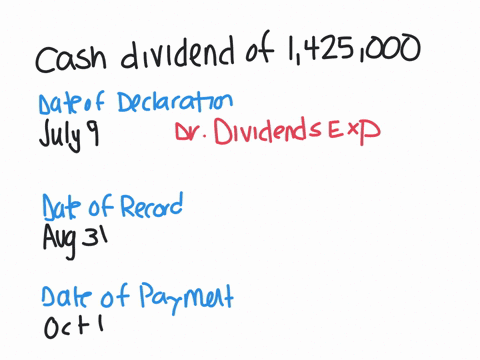 Cash dividend of 1,425,000
Date of Declaration
July 9 Dr. Dividends Exp
Date of Record
Aug 31
Date of Payment
Oct 1